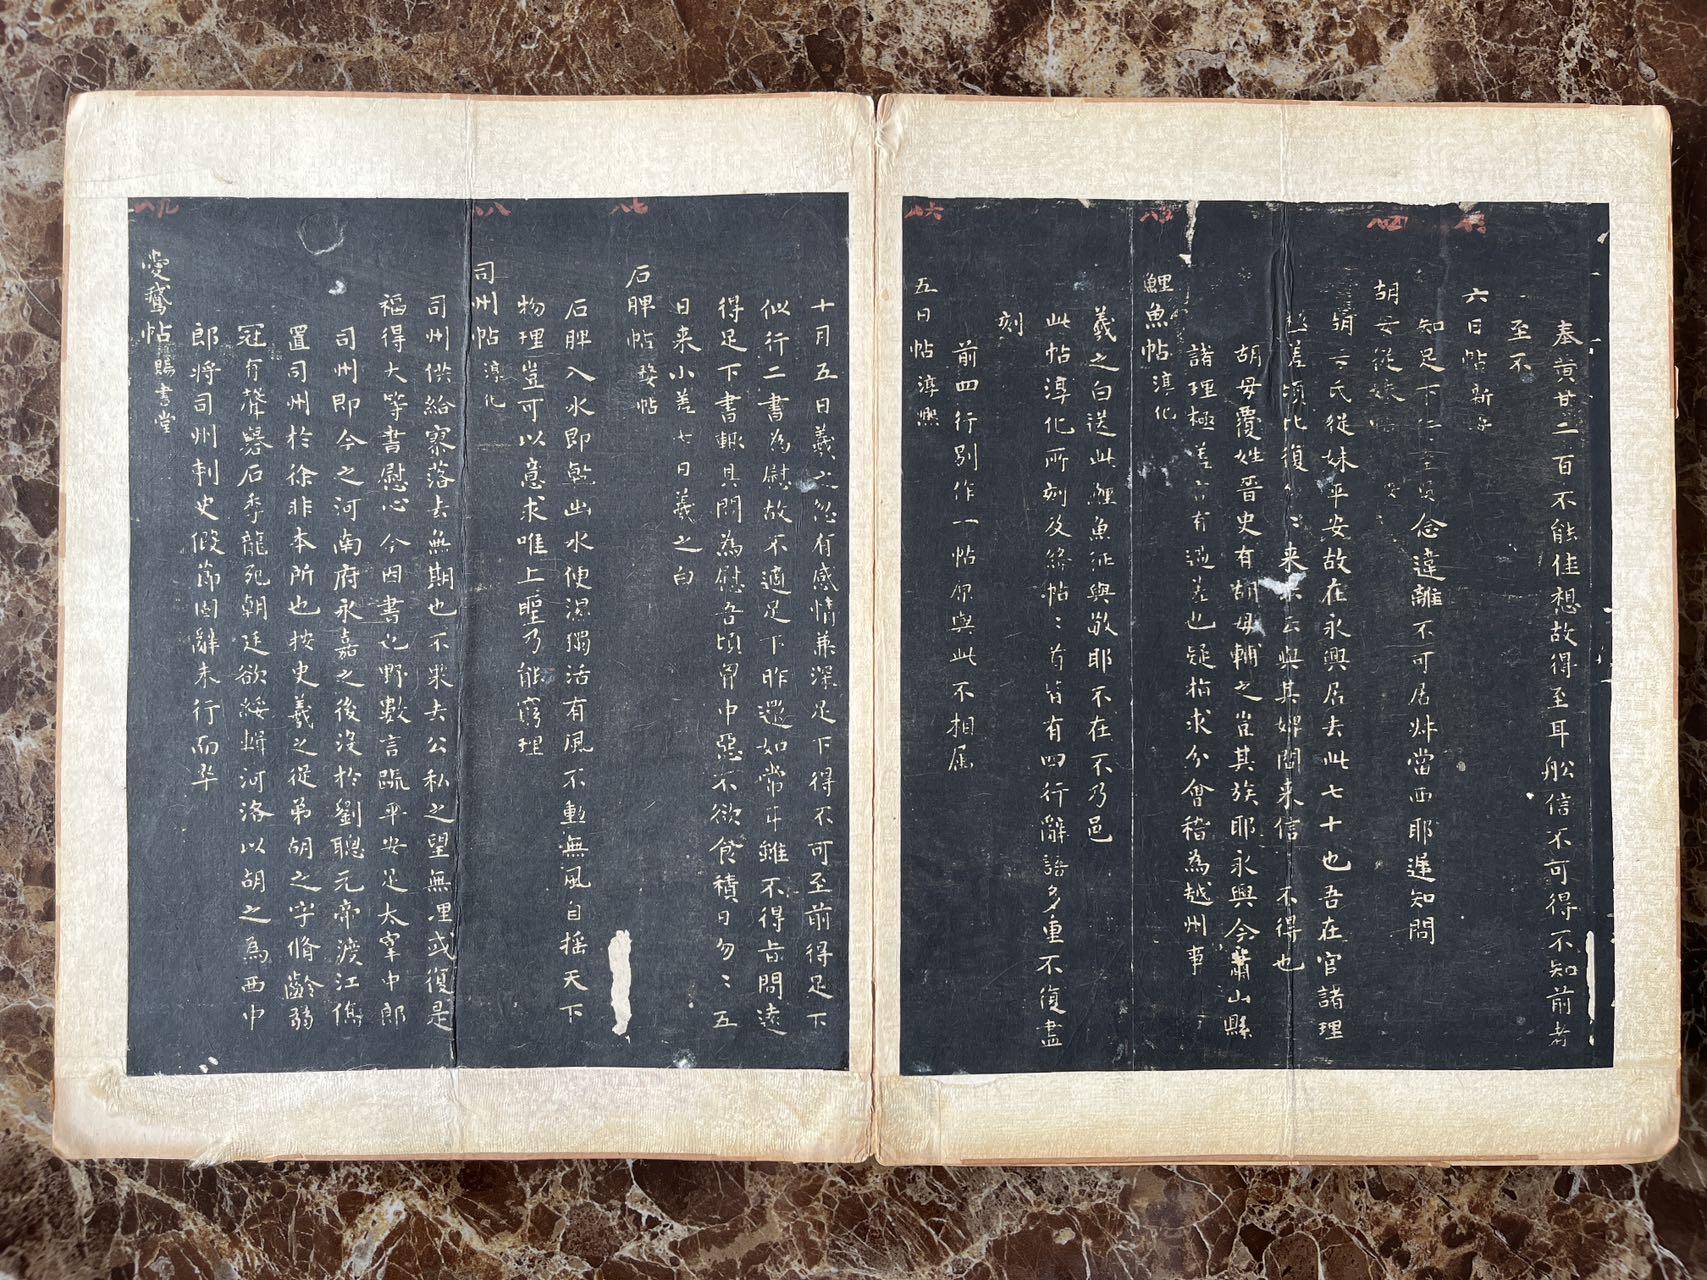 奉黃甘二百不能佳想故得至耳舩信不可得不知前者
至不
六日帖
知足下念違離不可居當西耶遲知問
胡母從妹
胡母氏從妹平安故在永興居去此七十也吾在官諸理
差頃比復匆匆来示云與其婢問来信不得也
胡母覆姓晋史有胡母輔之豈其族耶永興今蕭山縣
諸理極差言有過差也疑指求分會稽為越州事
鯉魚帖淳化
羲之白送此鯉魚征與敬耶不在不乃邑
此帖淳化所刻及絳帖〻首皆有四行辭語多重不復盡
刻
前四行別作一帖原與此不相屬
五日帖淳熙
十月五日羲之忽有感情兼深足下得不可至前得足下
似行二書為慰故不適足下昨還如常耳雖不得旨問遠
得足下書輒具問為慰吾頃胃中惡不欲食積日勿〻五
日来小差七日羲之白
石脾帖婺帖
石脾入水即乾出水便濕獨活有風不動無風自摇天下
物理豈可以意求唯上聖乃能窮理
司州帖淳化
司州供給寮落去無期也不果去公私之望無理或復是
福得大等書慰心今因書也野數言疏平安足太宰中郎
司州即今之河南府永嘉之後没於劉聰元帝渡江僑
置司州於徐非本所也按史羲之從弟胡之字脩齡弱
冠有聲譽石季龍死朝廷欲綏輯河洛以胡之為西中
郎將司州刺史假節固辭未行而卒
愛鵞帖賜書堂
九八
八八
七八
六八
五八
四八